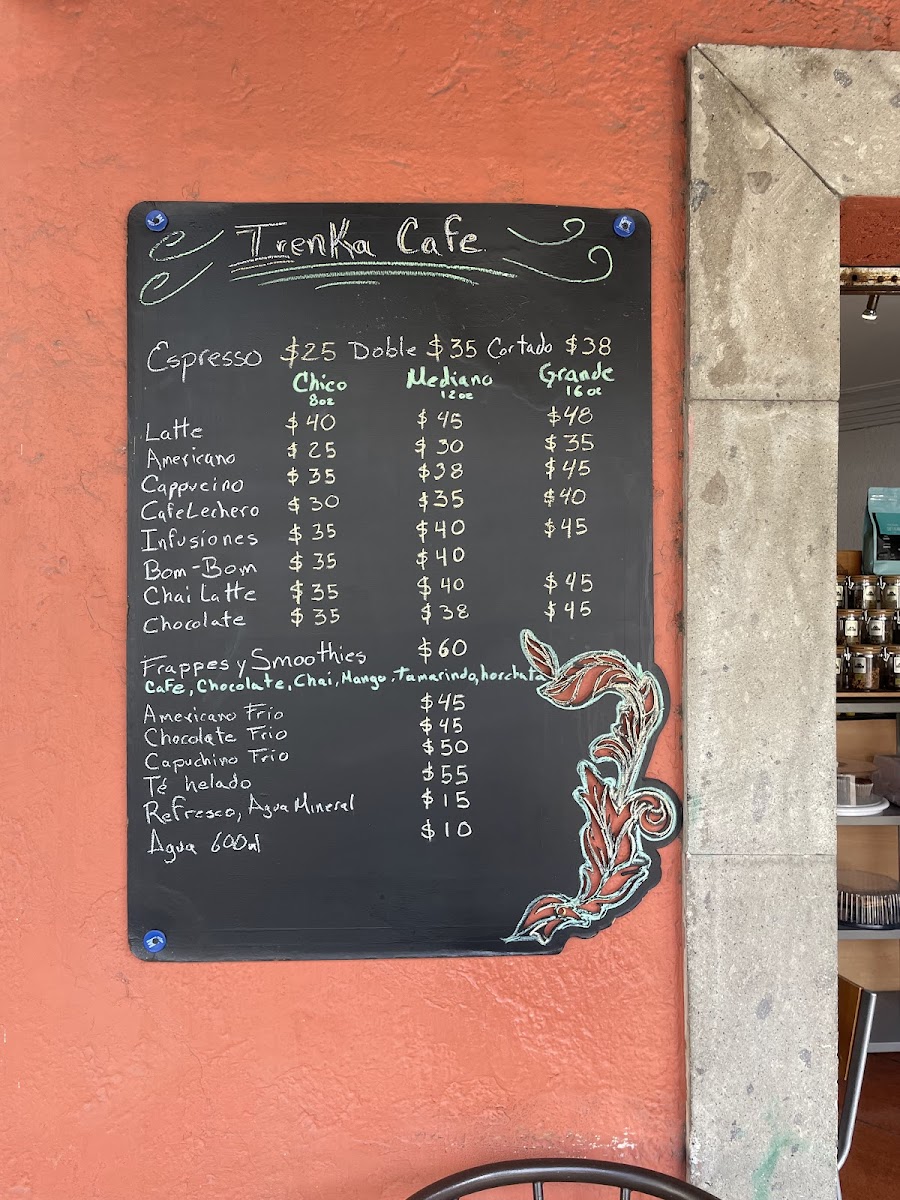 Trenka Cafe
Espresso $25 Doble $35 Cortado $38
Chico Mediano Grande
8oz 12oz 16oz
Latte $40 $45 $48
Americano $25 $30 $35
Cappucino $35 $38 $45
Cafe Lechero $30 $35 $40
Infusiones $35 $40 $45
Bom-Bom $35 $40
Chai Latte $35 $40 $45
Chocolate $35 $38 $45
Frappes y Smoothies $60
Cafe, Chocolate, Chai, Mango, Tamarindo, horchata
Americano Frio $45
Chocolate Frio $45
Capuchino Frio $50
Té helado $55
Refresco, Agua Mineral $15
Agua 600ml $10